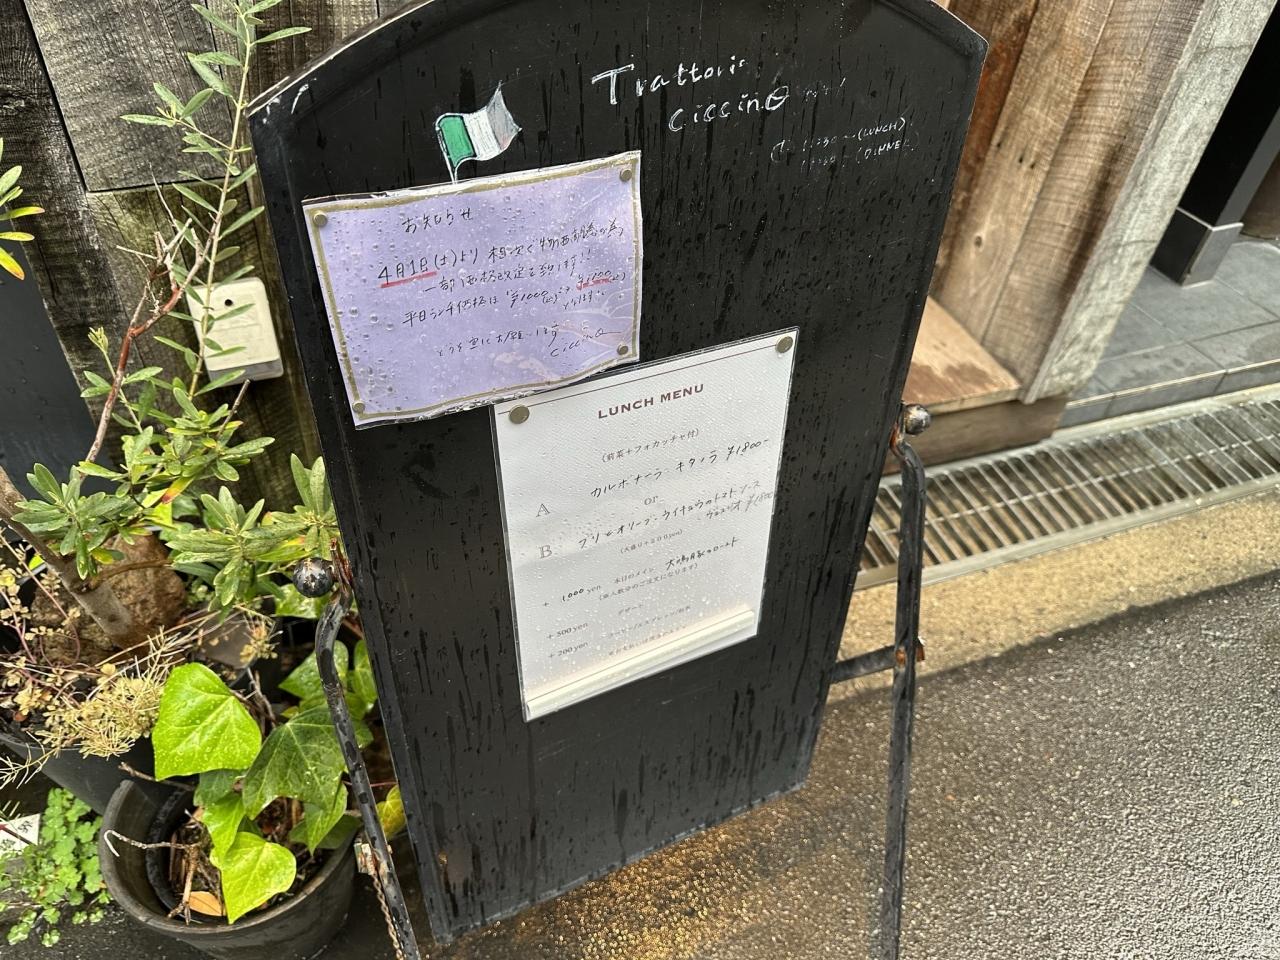 Trattoria
CiccinO
11:30 ~ (LUNCH)
~ (DINNER)
お知らせ
4月1日(土)より 相次ぐ物価高騰の為
一部価格改定を致します!!
平日ランチ価格は ¥1000 ¥1100
となります。
CiccinO
LUNCH MENU
(前菜+フォカッチャ付)
A カルボナーラ・キタッラ ¥1800-
or
B ブリとオリーブ・ウイキョウのトマトソース
¥1800
(大盛り+200yen)
+ 1,000 yen 本日のメイン 大嶋豚のロースト
(人数分のご注文になります)
+ 500 yen デザート
+ 200 yen コーヒー/エスプレッソ/紅茶